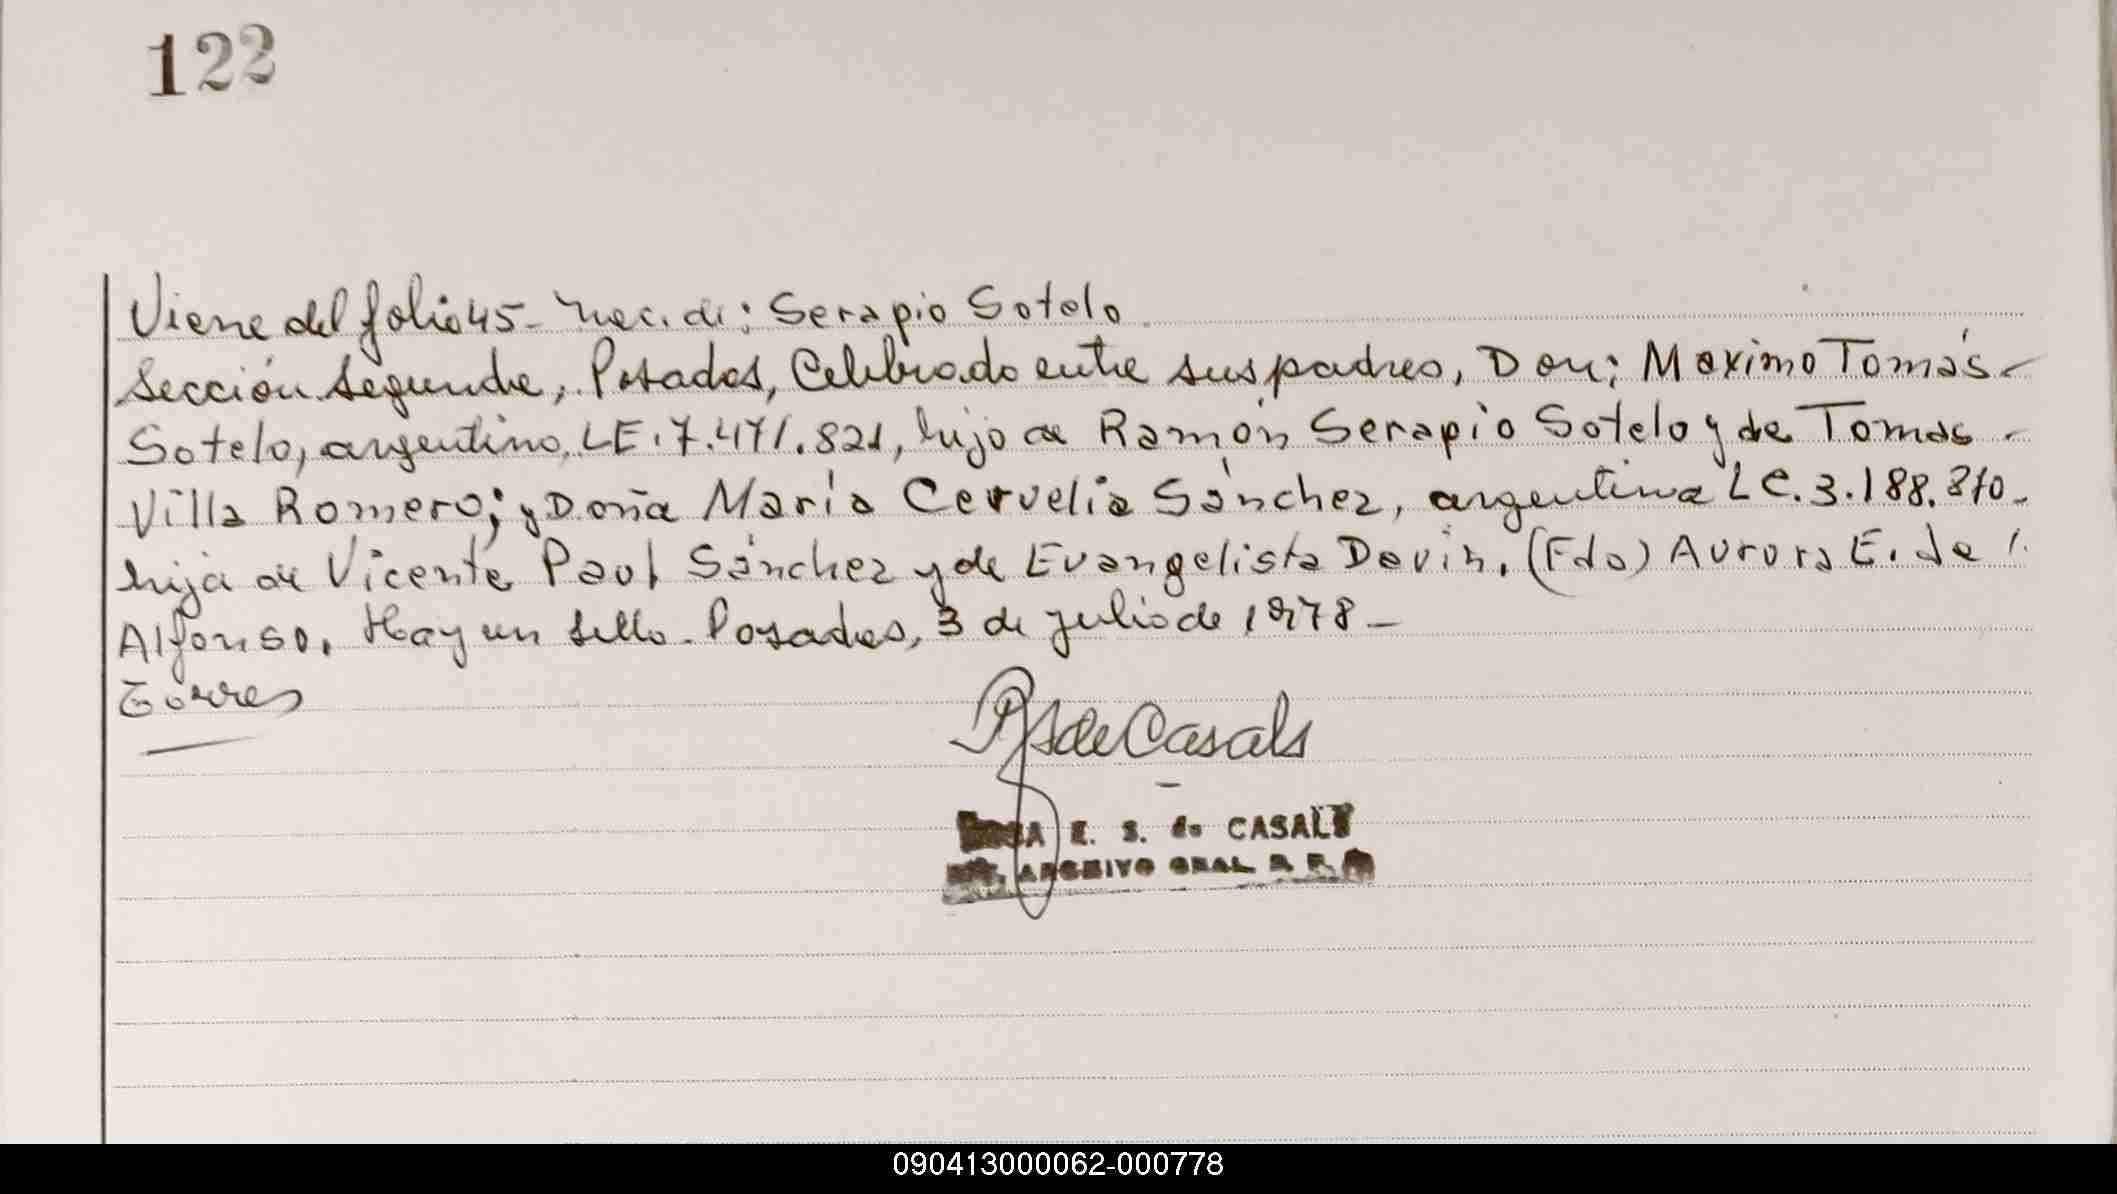 122
Viene del folio 45 - Nac. de: Serapio Sotelo
Sección Segunda, Posadas, Celebrado entre sus padres, Don: Maximo Tomás -
Sotelo, argentino, LE. 7.471.821, hijo de Ramón Serapio Sotelo y de Tomas -
Villa Romero; y Doña María Cervelia Sánchez, argentina LC. 3.188.370 -
hija de Vicente Paul Sánchez y de Evangelista Davin. (Fdo) Aurora E. de
Alfonso. Hay un sello. Posadas, 3 de julio de 1978 -
Torres
RS de Casals
E. S. de CASALS
ARCHIVO GRAL R. P.
090413000062-000778